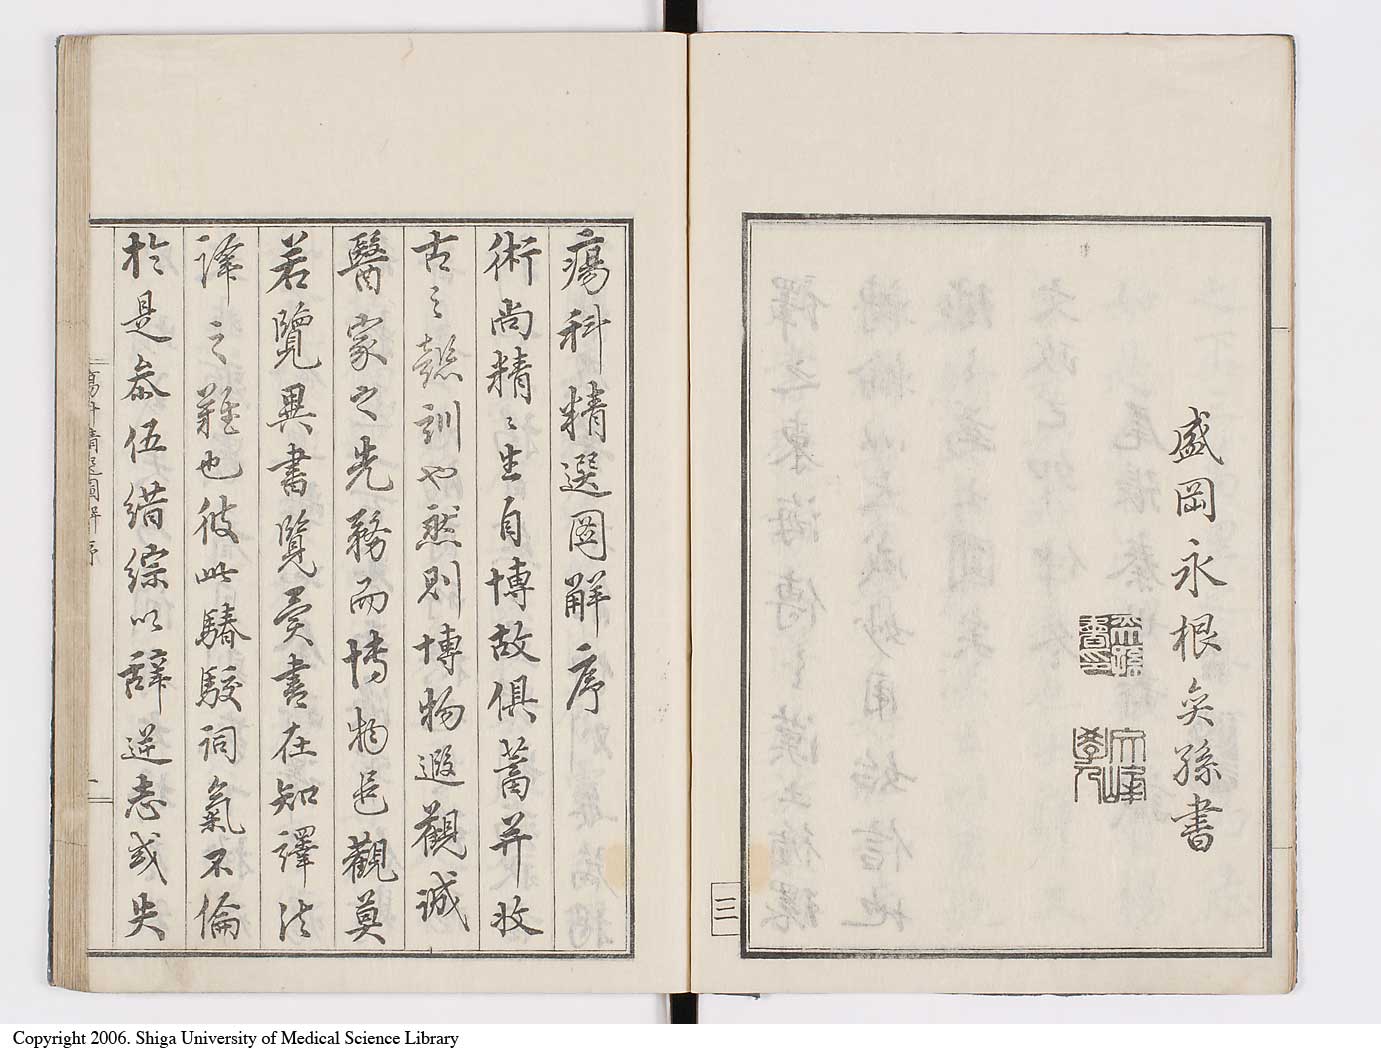 盛岡永根奕孫書
三
瘍科精選圖解序
術尚精〻生自博故俱蓄并收
古之懿訓也然則博物遐觀誠
醫家之先務而博物邑觀莫
若覽異書覽異書在知譯法
譯之難也彼此驕駁詞氣不倫
於是叅伍錯綜以辭逆志或失
瘍科精選圖解序
一
Copyright 2006. Shiga University of Medical Science Library